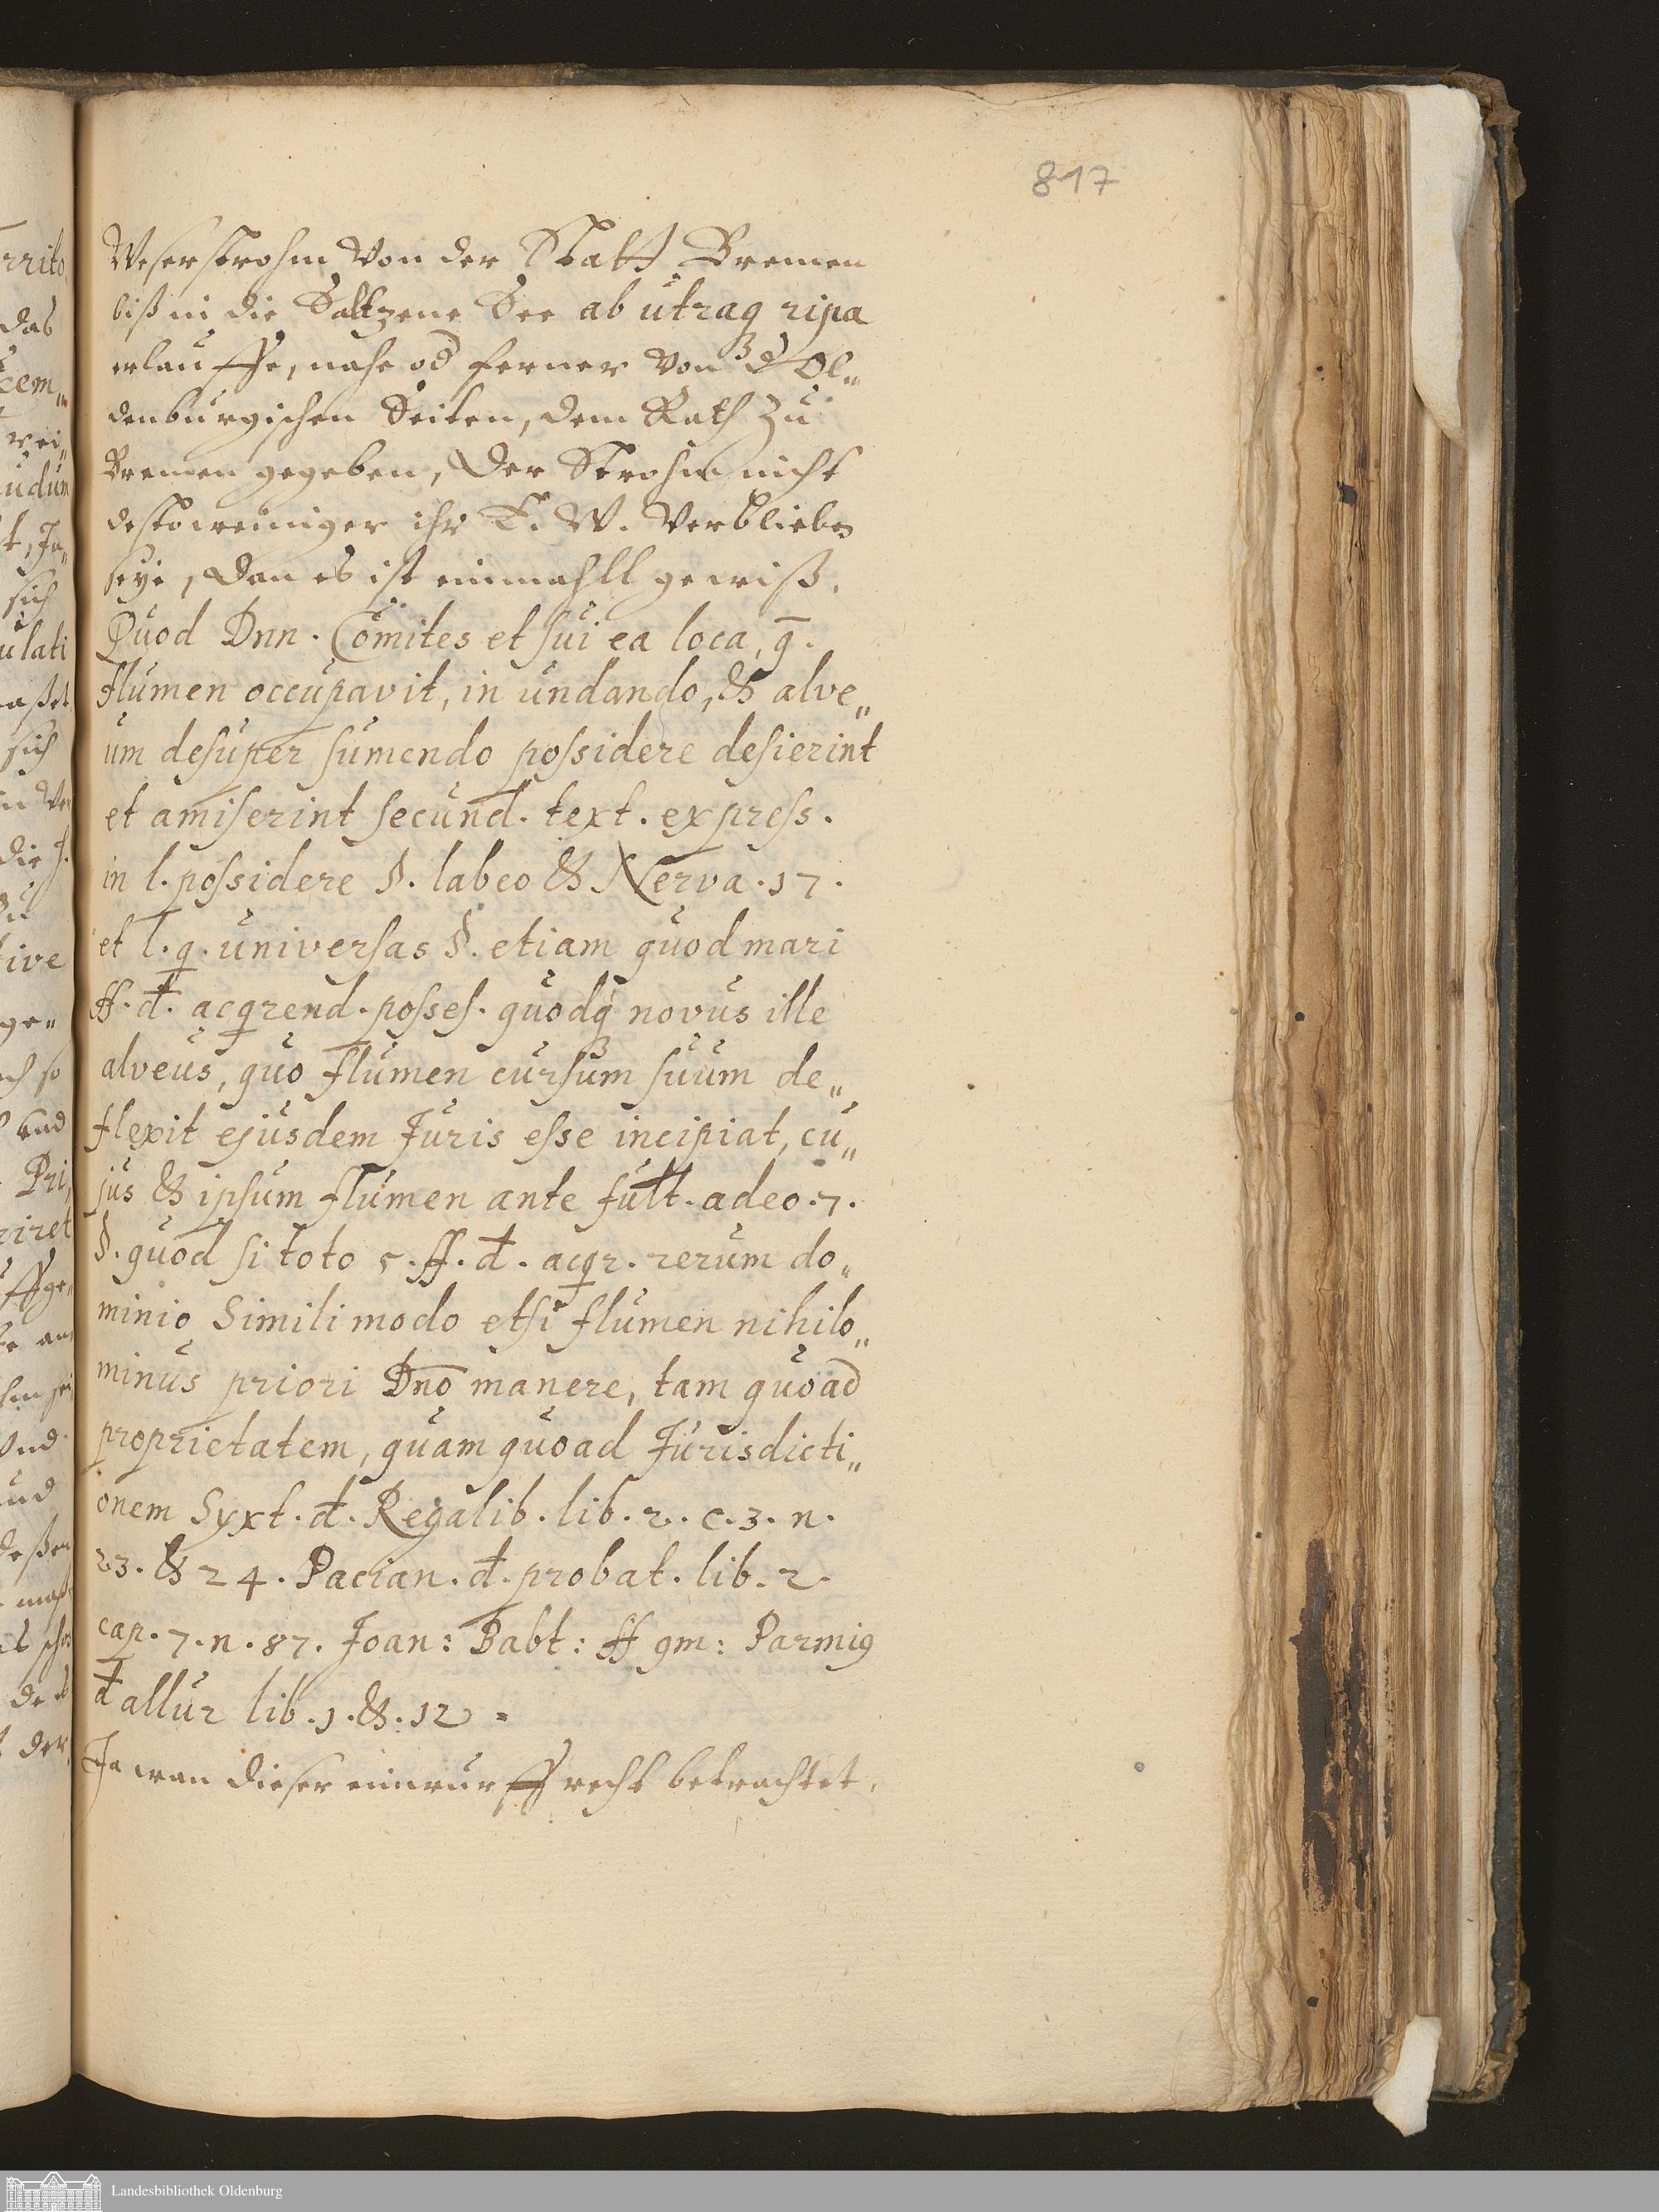 817
Weserstrohm von der Statt Bremen
biß in die Saltzene See ab utraq ripa
erlauffe, nahe od ferner von d Ol„
denburgischen Seiten, dem Rath zu
Bremen gegeben, der Strohm nicht
destoweiniger ihr E. W. verblieben
seye, dan es ist einmahll gewiß.
Quod Dnn. Comites et sui ea loca, q̄.
flumen occupavit, in undando, & alve„
um desuper sumendo possidere desierint
et amiserint secund. text. express.
in l. possidere §. labeo & Nerva. 17.
et l. q. universas §. etiam quod mari
ff. d. acqrend. posses. quodq novus ille
alveus, quo flumen cursum suum de„
flexit ejusdem Juris esse incipiat, cu„
jus & ipsum flumen ante fult. adeo. 7.
§. quod si toto 5. ff. d. acqr. rerum do„
minio Simili modo etsi flumen nihilo„
minus priori Dno manere, tam quoad
proprietatem, quam quoad Jurisdicti„
onem Syxt. d. Regalib. lib. 2. c. 3. n.
23. & 24. Pacian. d. probat. lib. 2.
cap. 7. n. 87. Joan: Babt: ff gm: Parmig
d allur lib. 1. &. 12.
Ja wan dieser einwurff recht betrachtet,
Landesbibliothek Oldenburg